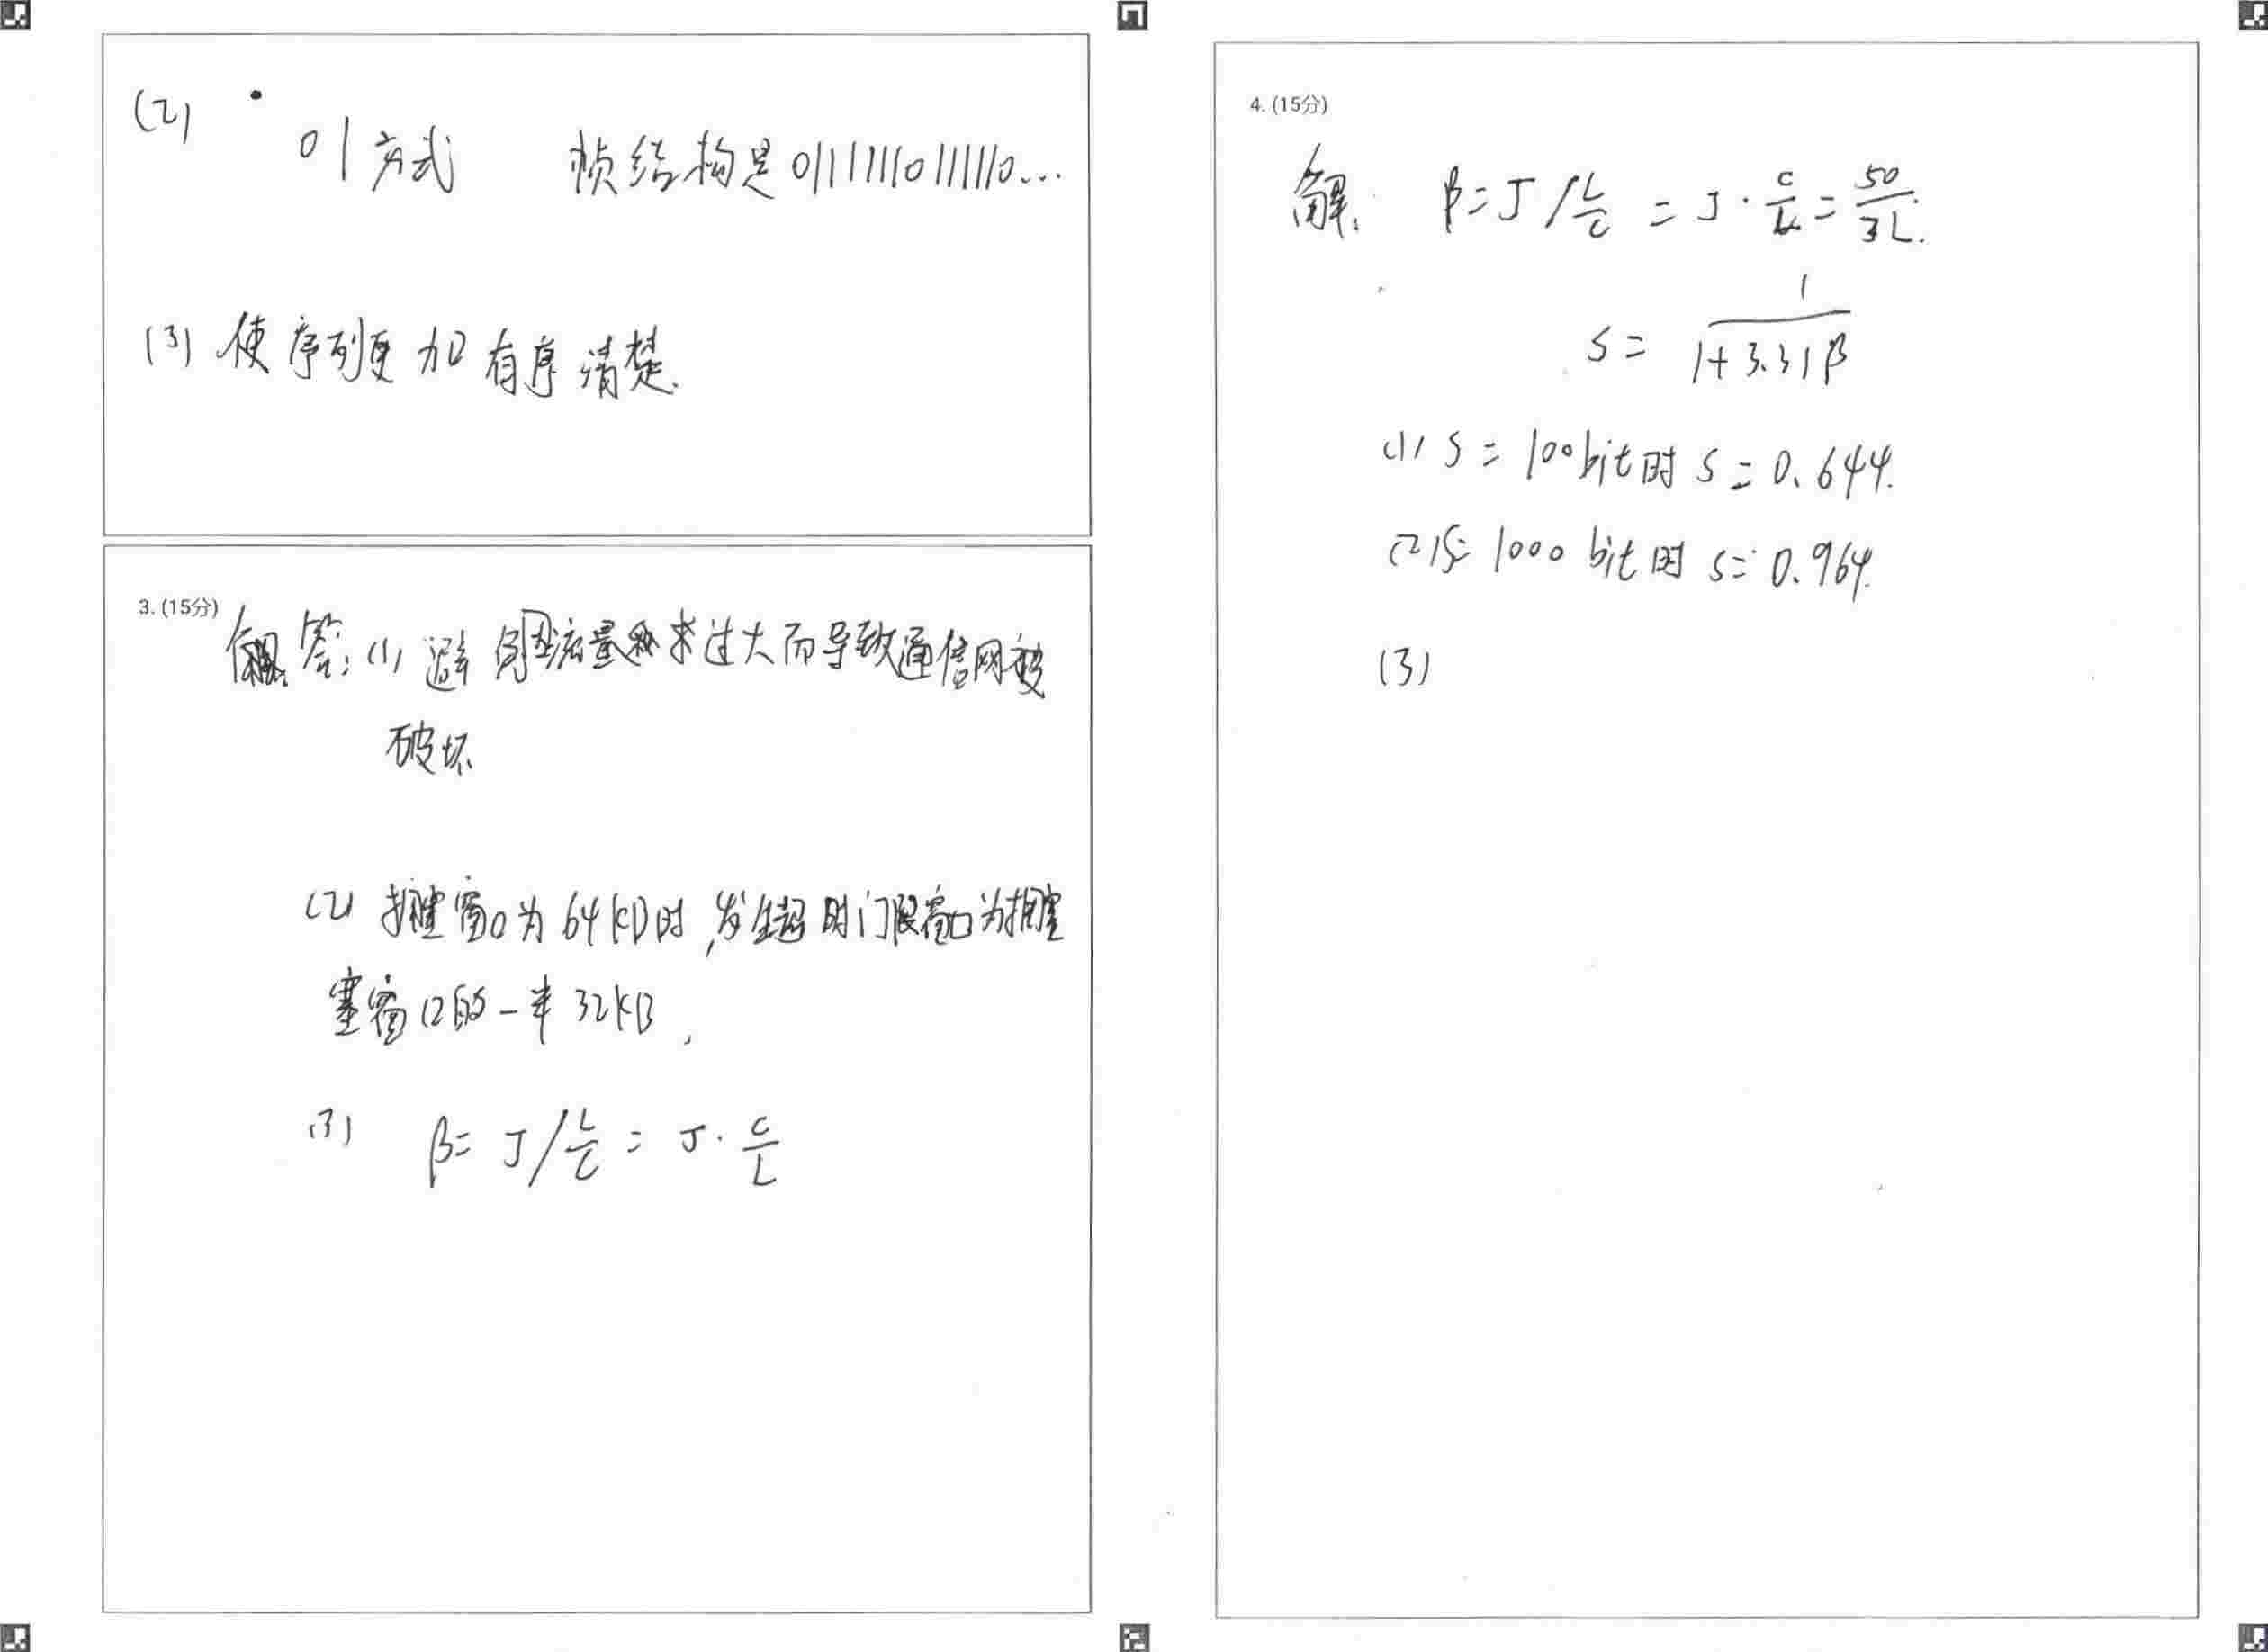 (2)
01方式 帧结构是011111101111110...
(3) 使序列更加有序清楚.
3. (15分)
答: (1) 避免因流量需求过大而导致通信网被
破坏
(2) 拥塞窗口为64KB时,发生超时门限窗口为拥塞
塞窗口的一半32KB,
(3) β= J/L/C = J· C/L
4. (15分)
解: β= J/L/C = J· C/L = 50/3L.
S= 1/1+3.31β
(1) S= 100bit时 S=0.644.
(2) S= 1000 bit时 S=0.964.
(3)